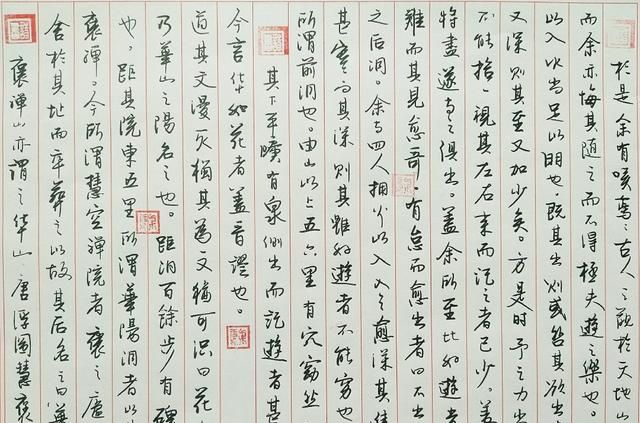 褒禪山亦謂之华山。唐浮圖慧褒
舍於其址而卒葬之以故其后名之曰
褒禪。今所謂慧空禪院者褒之廬
也。距其院東五里所謂華陽洞者以
乃華山之陽名之也。距洞百餘步有碑
道其文漫灭猶其為文猶可识曰花
今言华如花者盖音謬也。
其下平曠有泉側出而記遊者甚
所謂前洞也。由山以上五六里有穴窈然
甚寒问其深則其雖好遊者不能穷也
之后洞。余与四人擁火以入入之愈深其進
難而其見愈奇有怠而愈出者曰不出
特盡遂与之俱出。盖余所至比好遊者
不能捨一視其左右来而記之者已少。盖
又深則其至又加少矣。方是时予之力尚
以入火尚足以明也。既其出則或咎其欲出
而余亦悔其随之而不得極夫遊之樂也。
於是余有嘆焉：古人之觀於天地山